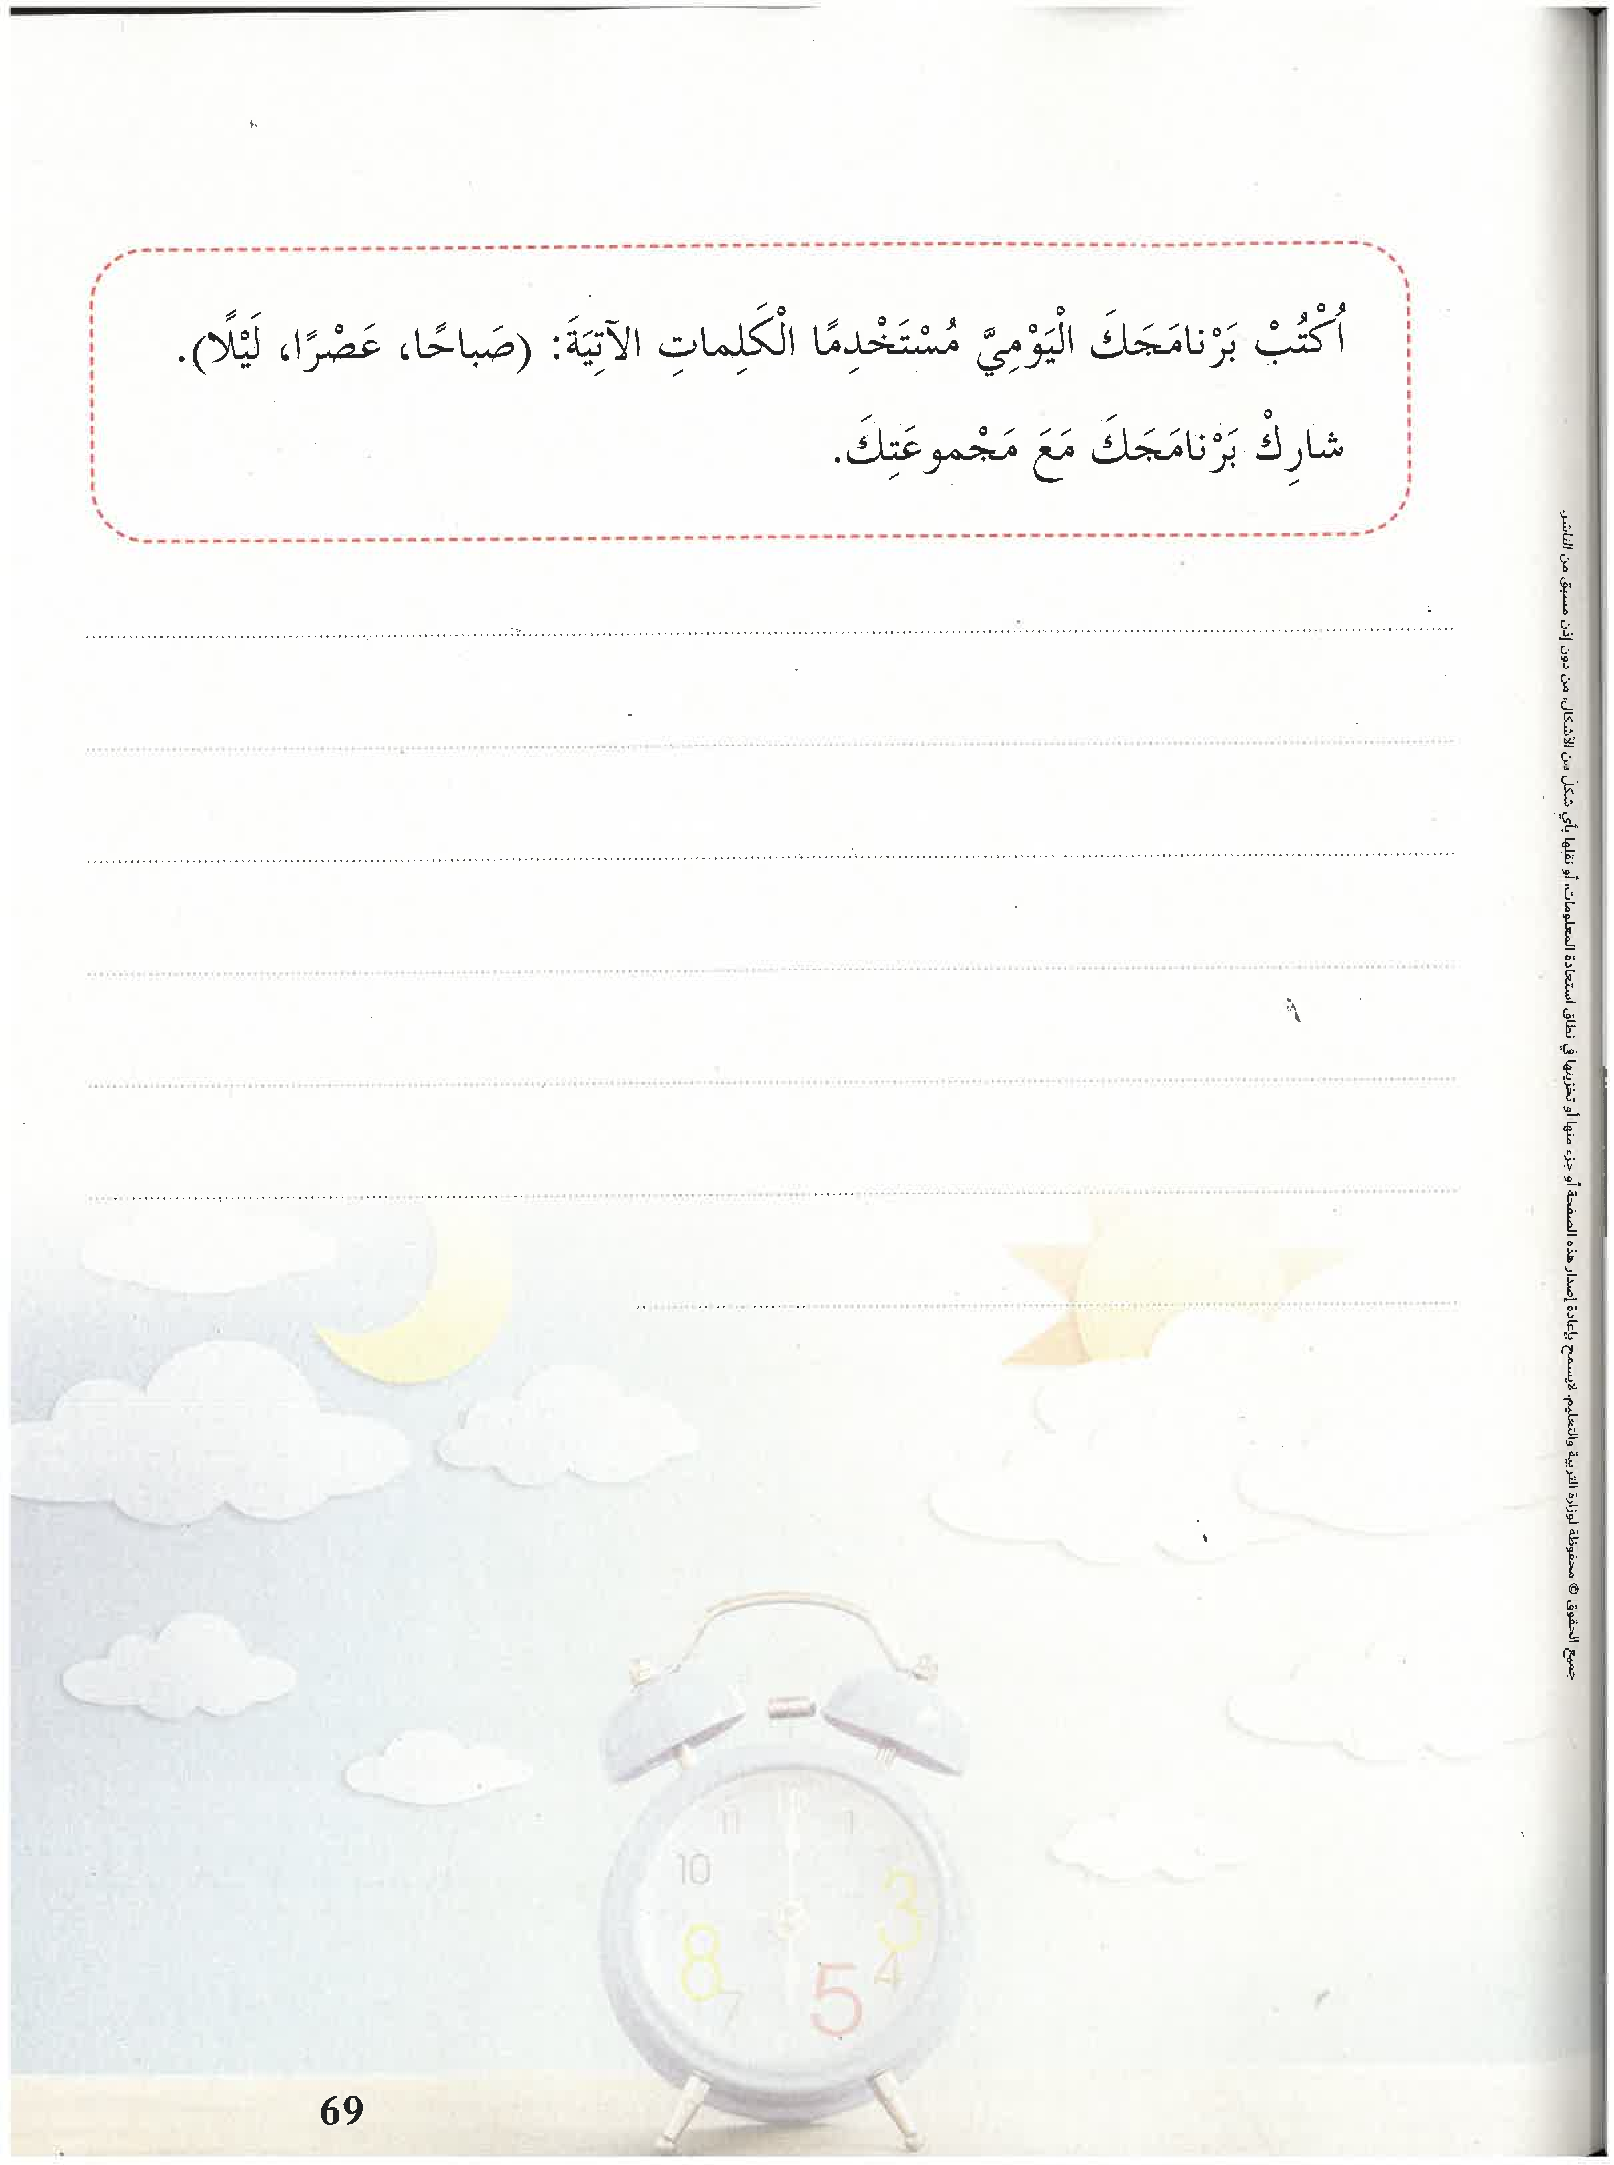 اُكْتُبْ بَرْنامَجَكَ الْيَوْمِيَّ مُسْتَخْدِمًا الْكَلِماتِ الآتِيَةَ: (صَباحًا، عَصْرًا، لَيْلًا).
شارِكْ بَرْنامَجَكَ مَعَ مَجْموعَتِكَ.
جميع الحقوق © محفوظة لوزارة التربية والتعليم. لايسمح بإعادة إصدار هذه الصفحة أو جزء منها أو تخزينها في نطاق استعادة المعلومات، أو نقلها بأي شكل من الأشكال، من دون إذن مسبق من الناشر.
11
1
10
3
8
4
7
5
69